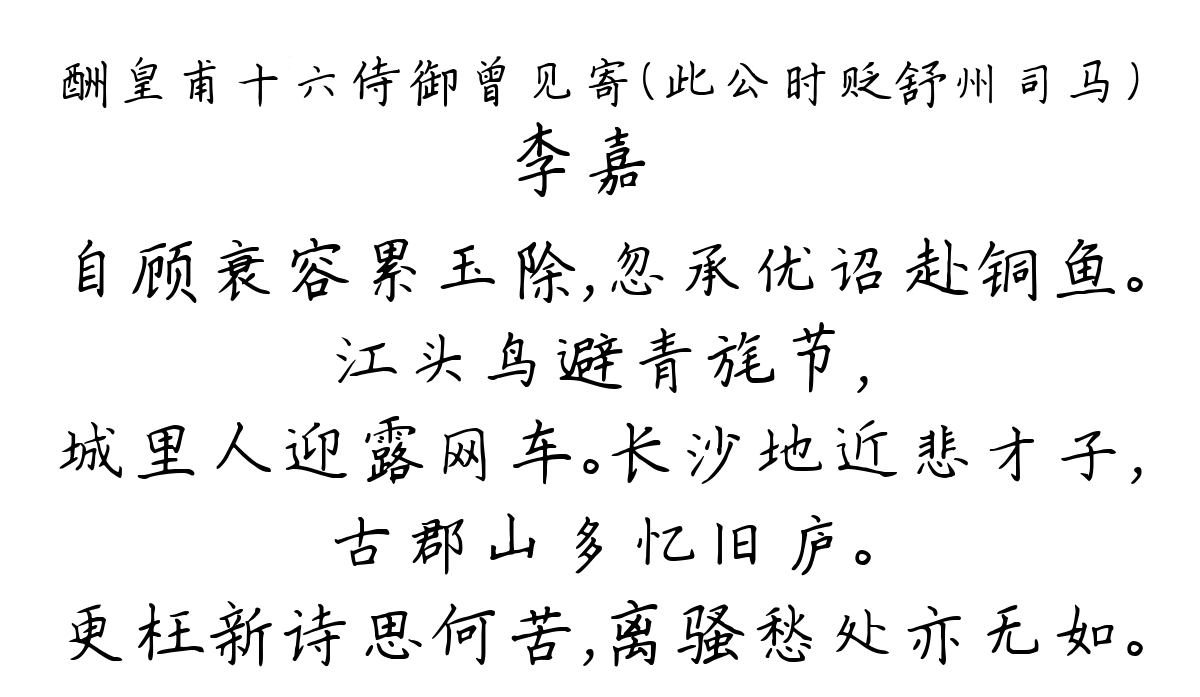 酬皇甫十六侍御曾见寄(此公时贬舒州司马)
李嘉
自顾衰容累玉除,忽承优诏赴铜鱼。
江头鸟避青旄节,
城里人迎露网车。长沙地近悲才子,
古郡山多忆旧庐。
更枉新诗思何苦,离骚愁处亦无如。